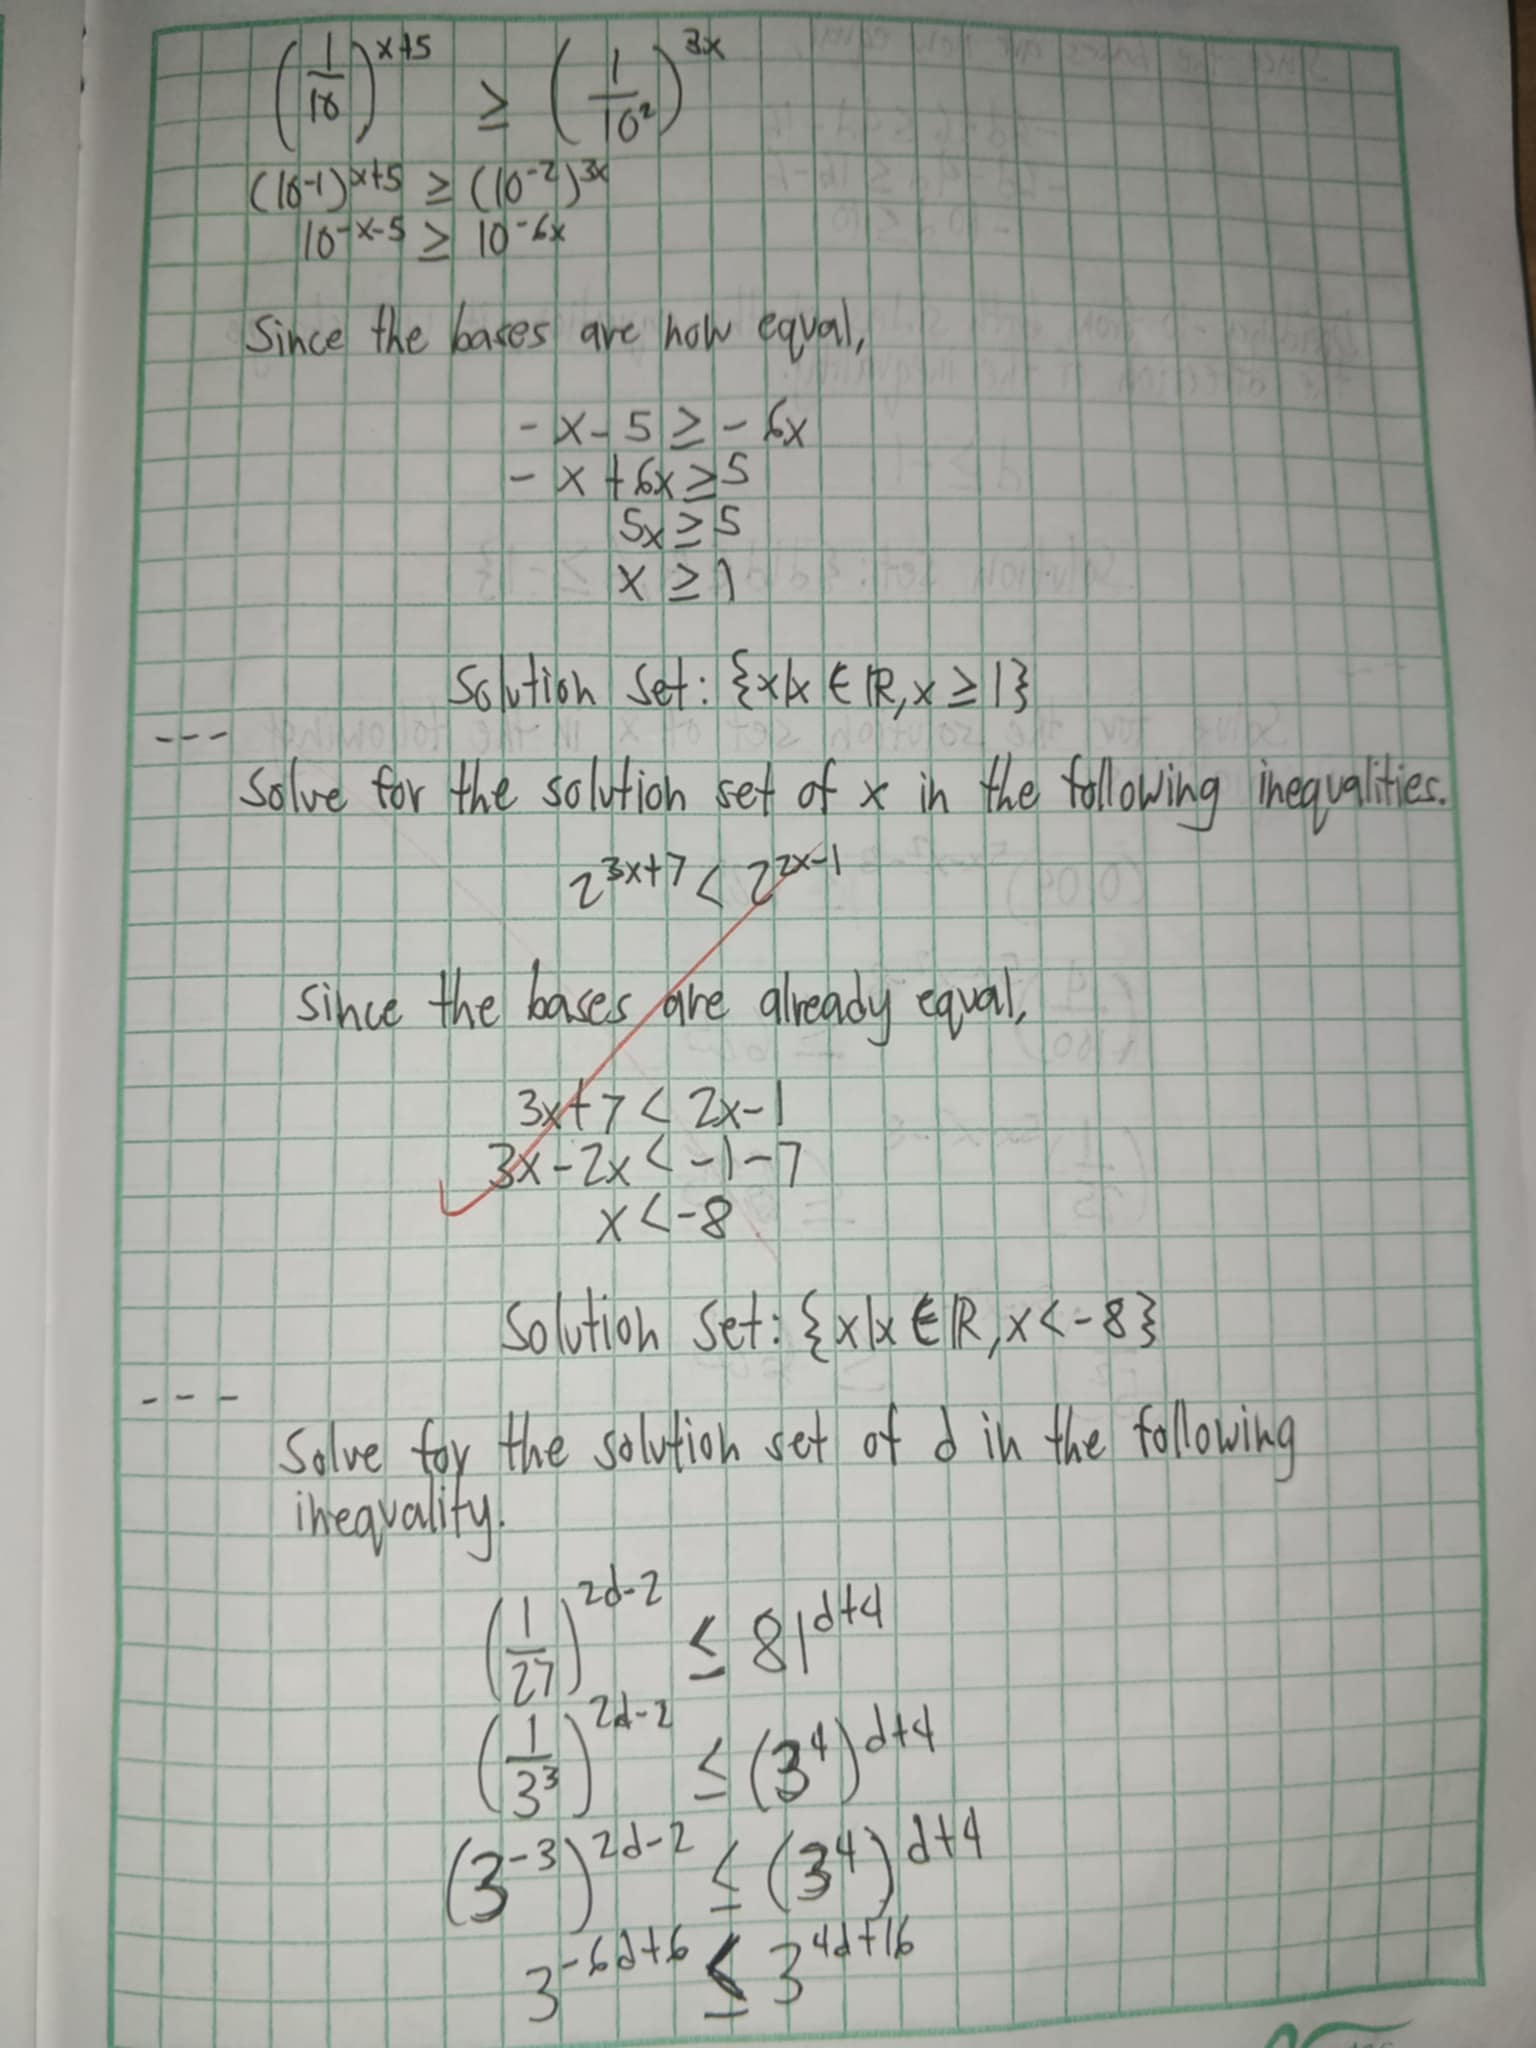 (1/10)^x+5 ≥ (1/10²)^3x
(10-1)^x+5 ≥ (10^-2)^3x
10^-x-5 ≥ 10^-6x
Since the bases are now equal,
-x-5 ≥ -6x
-x+6x ≥ 5
5x ≥ 5
x ≥ 1
Solution Set: {x|x ∈ ℝ, x ≥ 1}
---
Solve for the solution set of x in the following inequalities.
2^3x+7 < 2^2x-1
Since the bases are already equal,
3x+7 < 2x-1
3x-2x < -1-7
x < -8
Solution Set: {x|x ∈ ℝ, x < -8}
---
Solve for the solution set of d in the following
inequality.
(1/27)^2d-2 ≤ 81^d+4
(1/3³)^2d-2 ≤ (3^4)^d+4
(3^-3)^2d-2 ≤ (3^4)^d+4
3^-6d+6 ≤ 3^4d+16